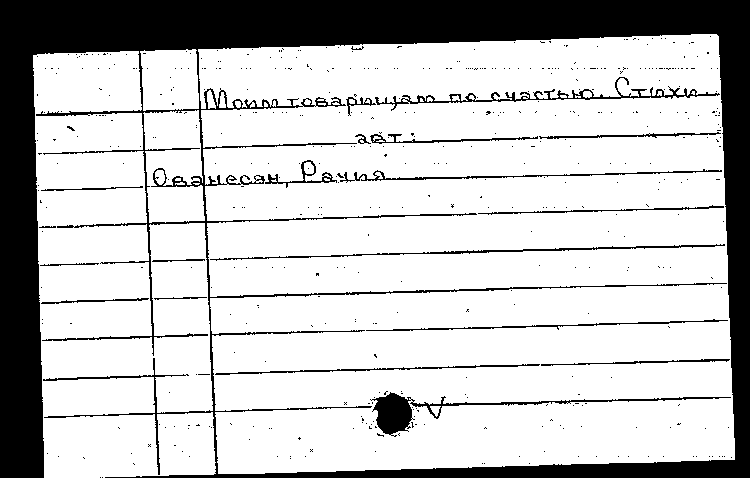 Моим товарищам по счастью. Стихи.
авт:
Ованесян, Рачия
V